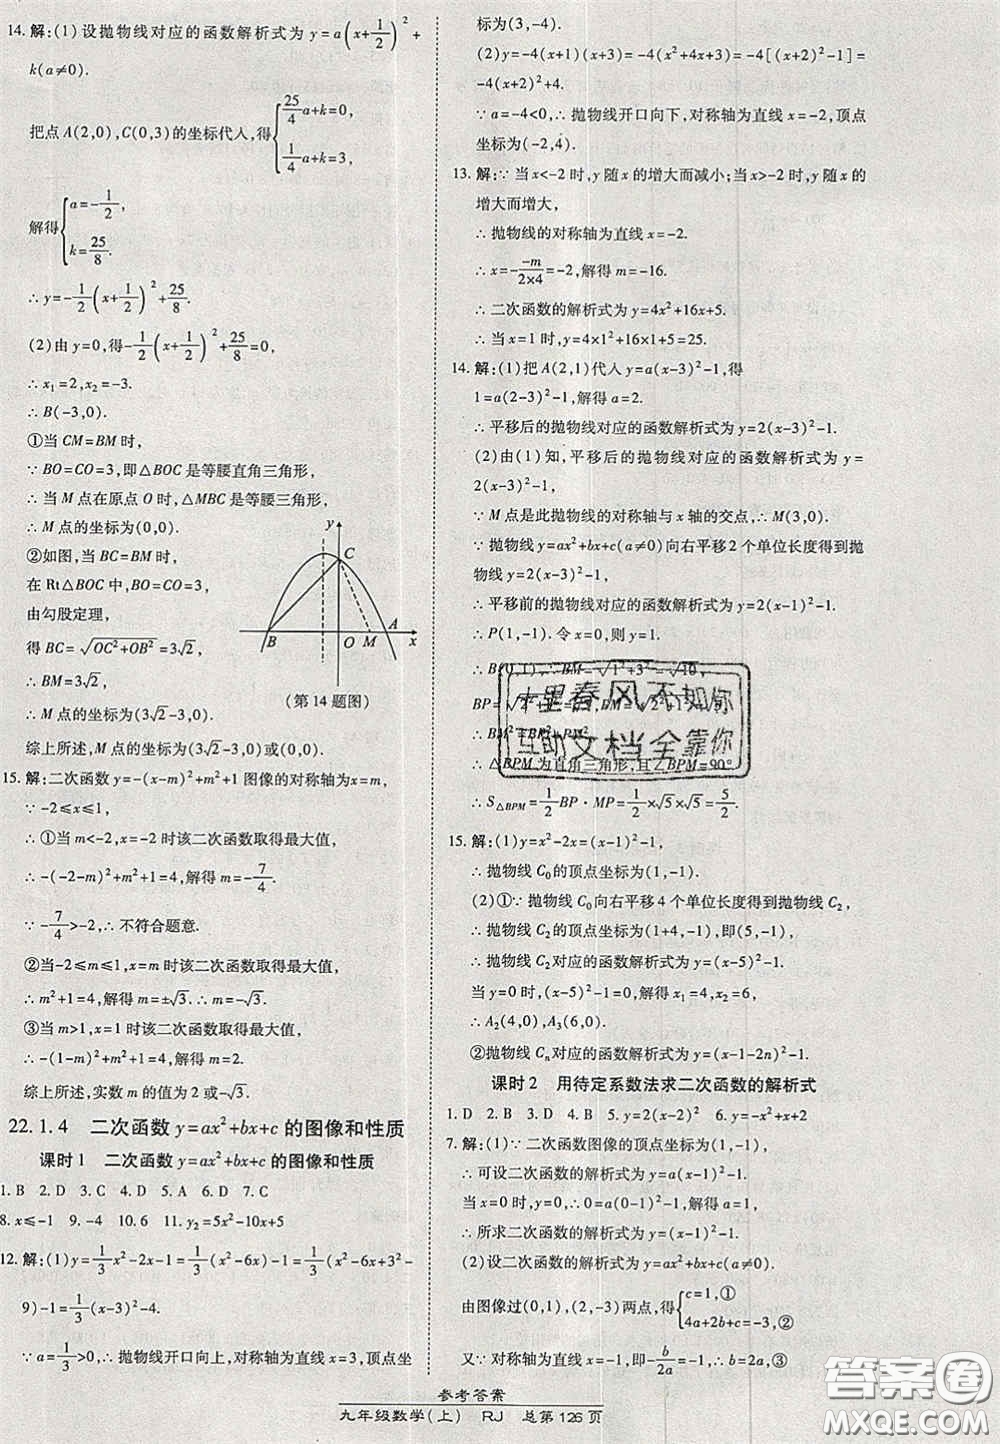 14. 解:(1)设抛物线对应的函数解析式为 y=a(x+1/2)²+
k(a≠0).
把点A(2,0),C(0,3)的坐标代入,得{25/4 a+k=0,
1/4 a+k=3,
解得{a=-1/2,
k=25/8.
∴ y=-1/2(x+1/2)²+25/8.
(2)由 y=0,得-1/2(x+1/2)²+25/8=0,
∴ x₁=2,x₂=-3.
∴ B(-3,0).
①当 CM=BM 时,
∵ BO=CO=3,即△BOC 是等腰直角三角形,
∴ 当 M 点在原点 O 时,△MBC 是等腰三角形,
∴ M 点的坐标为(0,0).
②如图,当 BC=BM 时,
在 Rt△BOC 中,BO=CO=3,
由勾股定理,
得 BC=√(OC²+OB²)=3√2,
∴ BM=3√2,
∴ M 点的坐标为(3√2-3,0).
y
C
B O M A x
(第14题图)
综上所述,M 点的坐标为(3√2-3,0)或(0,0).
15. 解:二次函数 y=-(x-m)²+m²+1 图像的对称轴为x=m,
∵ -2≤x≤1,
∴ ①当 m<-2,x=-2 时该二次函数取得最大值,
∴ -(-2-m)²+m²+1=4,解得 m=-7/4.
∵ -7/4>-2,∴ 不符合题意.
②当-2≤m≤1,x=m 时该二次函数取得最大值,
∴ m²+1=4,解得 m=±√3.∴ m=-√3.
③当 m>1,x=1 时该二次函数取得最大值,
∴ -(1-m)²+m²+1=4,解得 m=2.
综上所述,实数 m 的值为 2 或-√3.
22.1.4 二次函数 y=ax²+bx+c 的图像和性质
课时1 二次函数 y=ax²+bx+c 的图像和性质
1. B 2. D 3. C 4. D 5. A 6. D 7. C
8. x≤-1 9. -4 10. 6 11. y₂=5x²-10x+5
12. 解:(1)y=1/3x²-2x-1=1/3(x²-6x)-1=1/3(x²-6x+3²-
9)-1=1/3(x-3)²-4.
∵ a=1/3>0,∴ 抛物线开口向上,对称轴为直线 x=3,顶点坐
标为(3,-4).
(2)y=-4(x+1)(x+3)=-4(x²+4x+3)=-4[(x+2)²-1]=
-4(x+2)²+4.
∵ a=-4<0,∴ 抛物线开口向下,对称轴为直线x=-2,顶点
坐标为(-2,4).
13. 解:∵ 当 x<-2 时,y 随x 的增大而减小;当 x>-2 时,y 随x 的
增大而增大,
∴ 抛物线的对称轴为直线 x=-2.
∴ x=--m/2×4=-2,解得 m=-16.
∴ 二次函数的解析式为 y=4x²+16x+5.
∴ 当 x=1 时,y=4×1²+16×1+5=25.
14. 解:(1)把 A(2,1)代入 y=a(x-3)²-1,得
1=a(2-3)²-1,解得 a=2.
∴ 平移后的抛物线对应的函数解析式为 y=2(x-3)²-1.
(2)由(1)知,平移后的抛物线对应的函数解析式为 y=
2(x-3)²-1,
∵ M点是此抛物线的对称轴与x 轴的交点,∴ M(3,0).
∵ 抛物线 y=ax²+bx+c(a≠0)向右平移2 个单位长度得到抛
物线 y=2(x-3)²-1,
∴ 平移前的抛物线对应的函数解析式为 y=2(x-1)²-1.
∴ P(1,-1). 令 x=0,则 y=1.
∴ B(0,1),∴ BM=√(1²+3²)=√10,
∴ S△BPM=1/2 BP·MP=1/2×√5×√5=5/2.
十里春风不如你
互助文档全靠你
15. 解:(1)y=x²-2x=(x-1)²-1,
∴ 抛物线 C₀的顶点坐标为(1,-1).
(2)①∵ 抛物线 C₀向右平移 4 个单位长度得到抛物线 C₂,
∴ 抛物线 C₂的顶点坐标为(1+4,-1),即(5,-1),
∴ 抛物线 C₂对应的函数解析式为 y=(x-5)²-1.
当 y=0 时,(x-5)²-1=0,解得 x₁=4,x₂=6,
∴ A₂(4,0),A₃(6,0).
②抛物线 Cₙ对应的函数解析式为 y=(x-1-2n)²-1.
课时2 用待定系数法求二次函数的解析式
1. D 2. D 3. C 4. D 5. D 6. y=-x²+x+2
7. 解:(1)∵ 二次函数图像的顶点坐标为(1,-1),
∴ 可设二次函数的解析式为 y=a(x-1)²-1.
当 x=0 时,y=0,∴ 0=a(0-1)²-1,解得 a=1,
∴ 所求二次函数的解析式为 y=(x-1)²-1.
(2)设二次函数的解析式为 y=ax²+bx+c(a≠0).
由图像过(0,1),(2,-3)两点,得{c=1,①
4a+2b+c=-3,②
又∵ 对称轴为直线 x=-1,即-b/2a=-1,∴ b=2a,③
参考答案
九年级数学(上) RJ 总第 126 页
答案圈
MXQE.COM